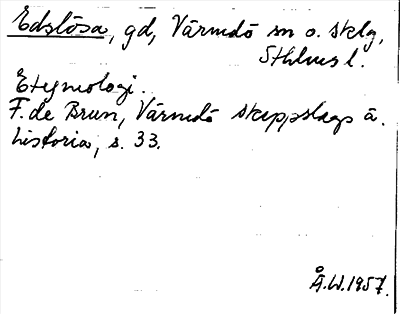 Edslösa, gd, Värmdö sn o. sklg,
Sthlms l.
Etymologi.
F. de Brun, Värmdö skeppslags ä.
historia, s. 33.
Å.W. 1957.